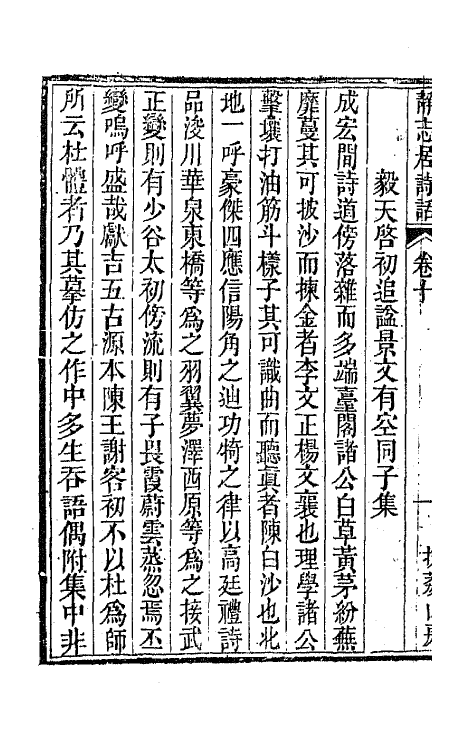 靜志居詩話
卷十
一
毅天啓初追諡景文有空同子集
成宏間詩道傍落雜而多端臺閣諸公白草黃茅紛蕪
靡蔓其可披沙而揀金者李文正楊文襄也理學諸公
擊壤打油筋斗樣子其可識曲而聽眞者陳白沙也北
地一呼豪傑四應信陽角之迪功犄之律以高廷禮詩
品浚川華泉東橋等爲之羽翼夢澤西原等爲之接武
正變則有少谷太初傍流則有子畏霞蔚雲蒸忽焉丕
變嗚呼盛哉獻吉五古源本陳王謝客初不以杜爲師
所云杜體者乃其摹仿之作中多生吞語偶附集中非